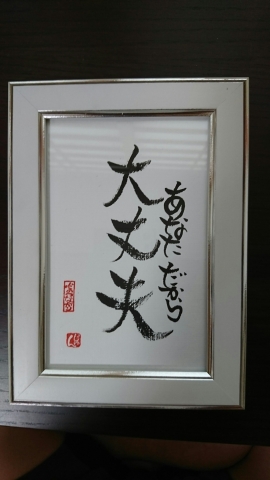 あなただから
大丈夫